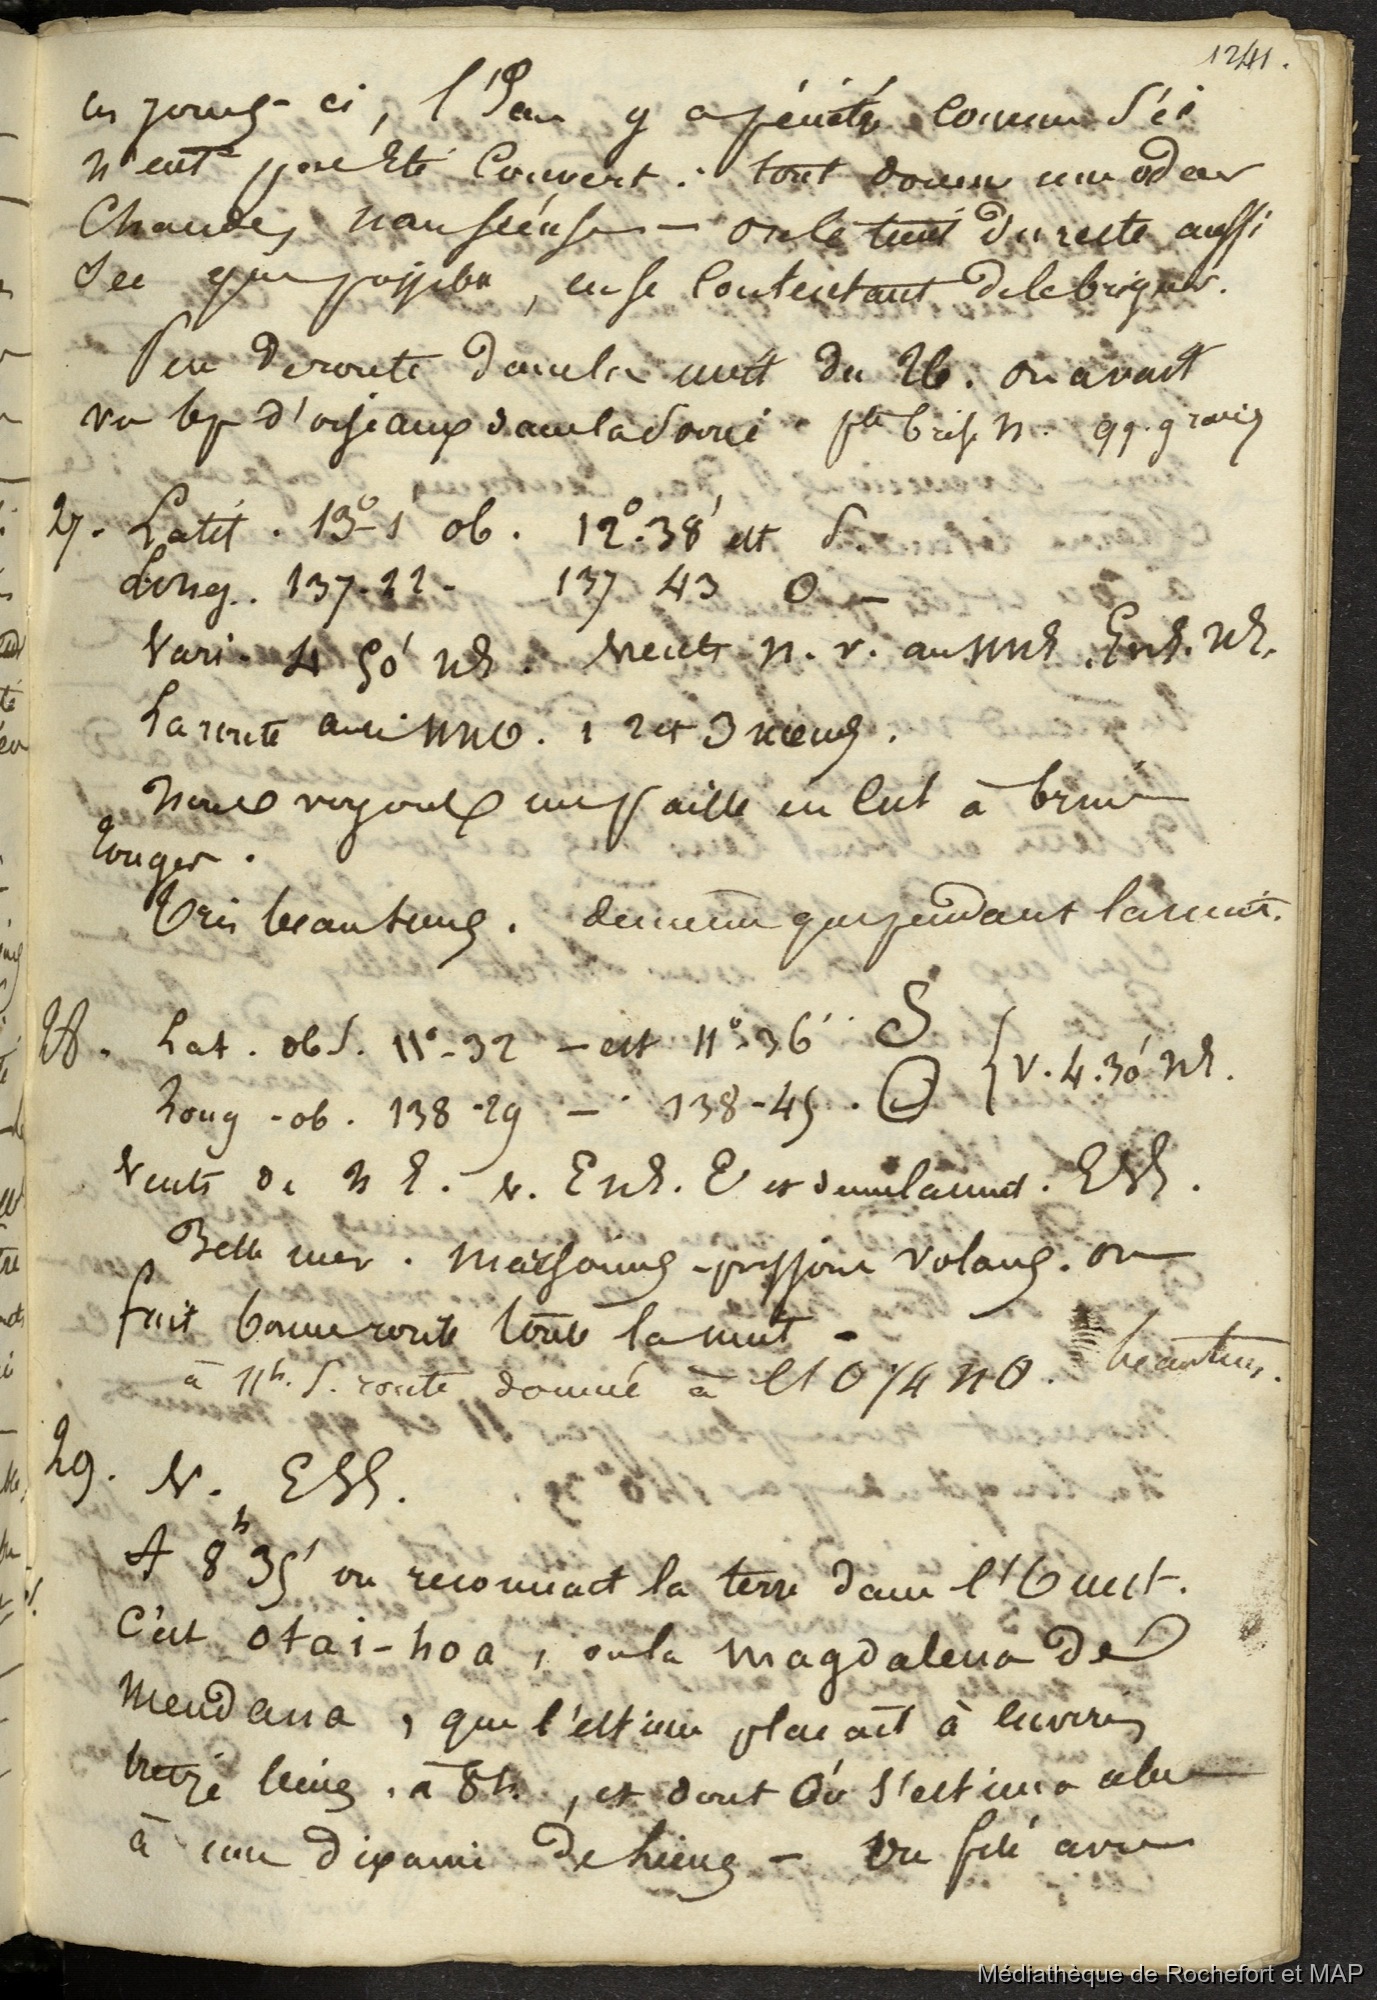 1241.
ces jours-ci, l'Eau y a pénétré comme s'il
n'eut pas été couvert : tout donne une odeur
Chaude, nauséeuse — on le tient du reste aussi
sec que possible, en se contentant de le
Peu de route dans la nuit du 26. on avait
vu bp d'oiseaux dans la soirée pte brise n. qq. grains
27. Latit. 13°-1' ob. 12°.38' est S.
Long. 137-22- 137 43 O —
Vari. 4 50' NE. Vents n. v. au NNE. ENE. NE.
La route au NNO. 1 2 et 3 nœuds.
Nous voyons un paille en cul à brins
rouges.
Très beau temps. de même que pendant la nuit.
28. Lat. obs. 11°-32 — est 11°-36' S
Long - ob. 138-29 — 138-45. O { V. 4.30' NE.
Vents de N E. v. ENE. E et dans la nuit. ESE.
Belle mer. marsouins - poissons volans. on
fait bonne route toute la nuit -
à 11h. S. route donné à l'O 1/4 NO. beau tems.
29. V. ESE.
A 8h 35' on reconnait la terre dans l'Ouest.
C'est Otai-hoa, ou la Magdalena de
Mendana, que l'estime plaçait à environ
treize lieues à 8h., et dont on s'estima alors
à une dixaine de lieues — On filé avec
Médiathèque de Rochefort et MAP